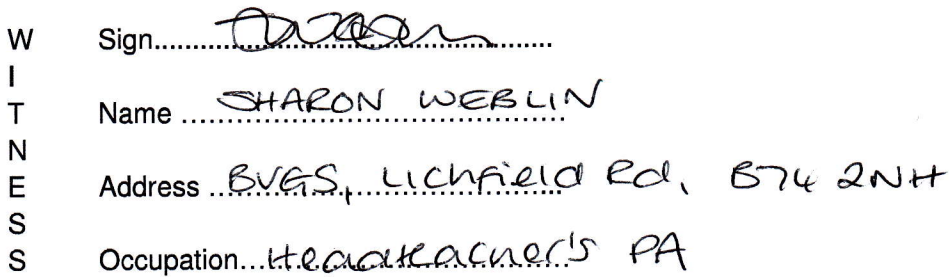 WITNESS
Sign
Name SHARON WEBLIN
Address BVGS, Lichfield Rd, B74 2NH
Occupation Headteacher's PA